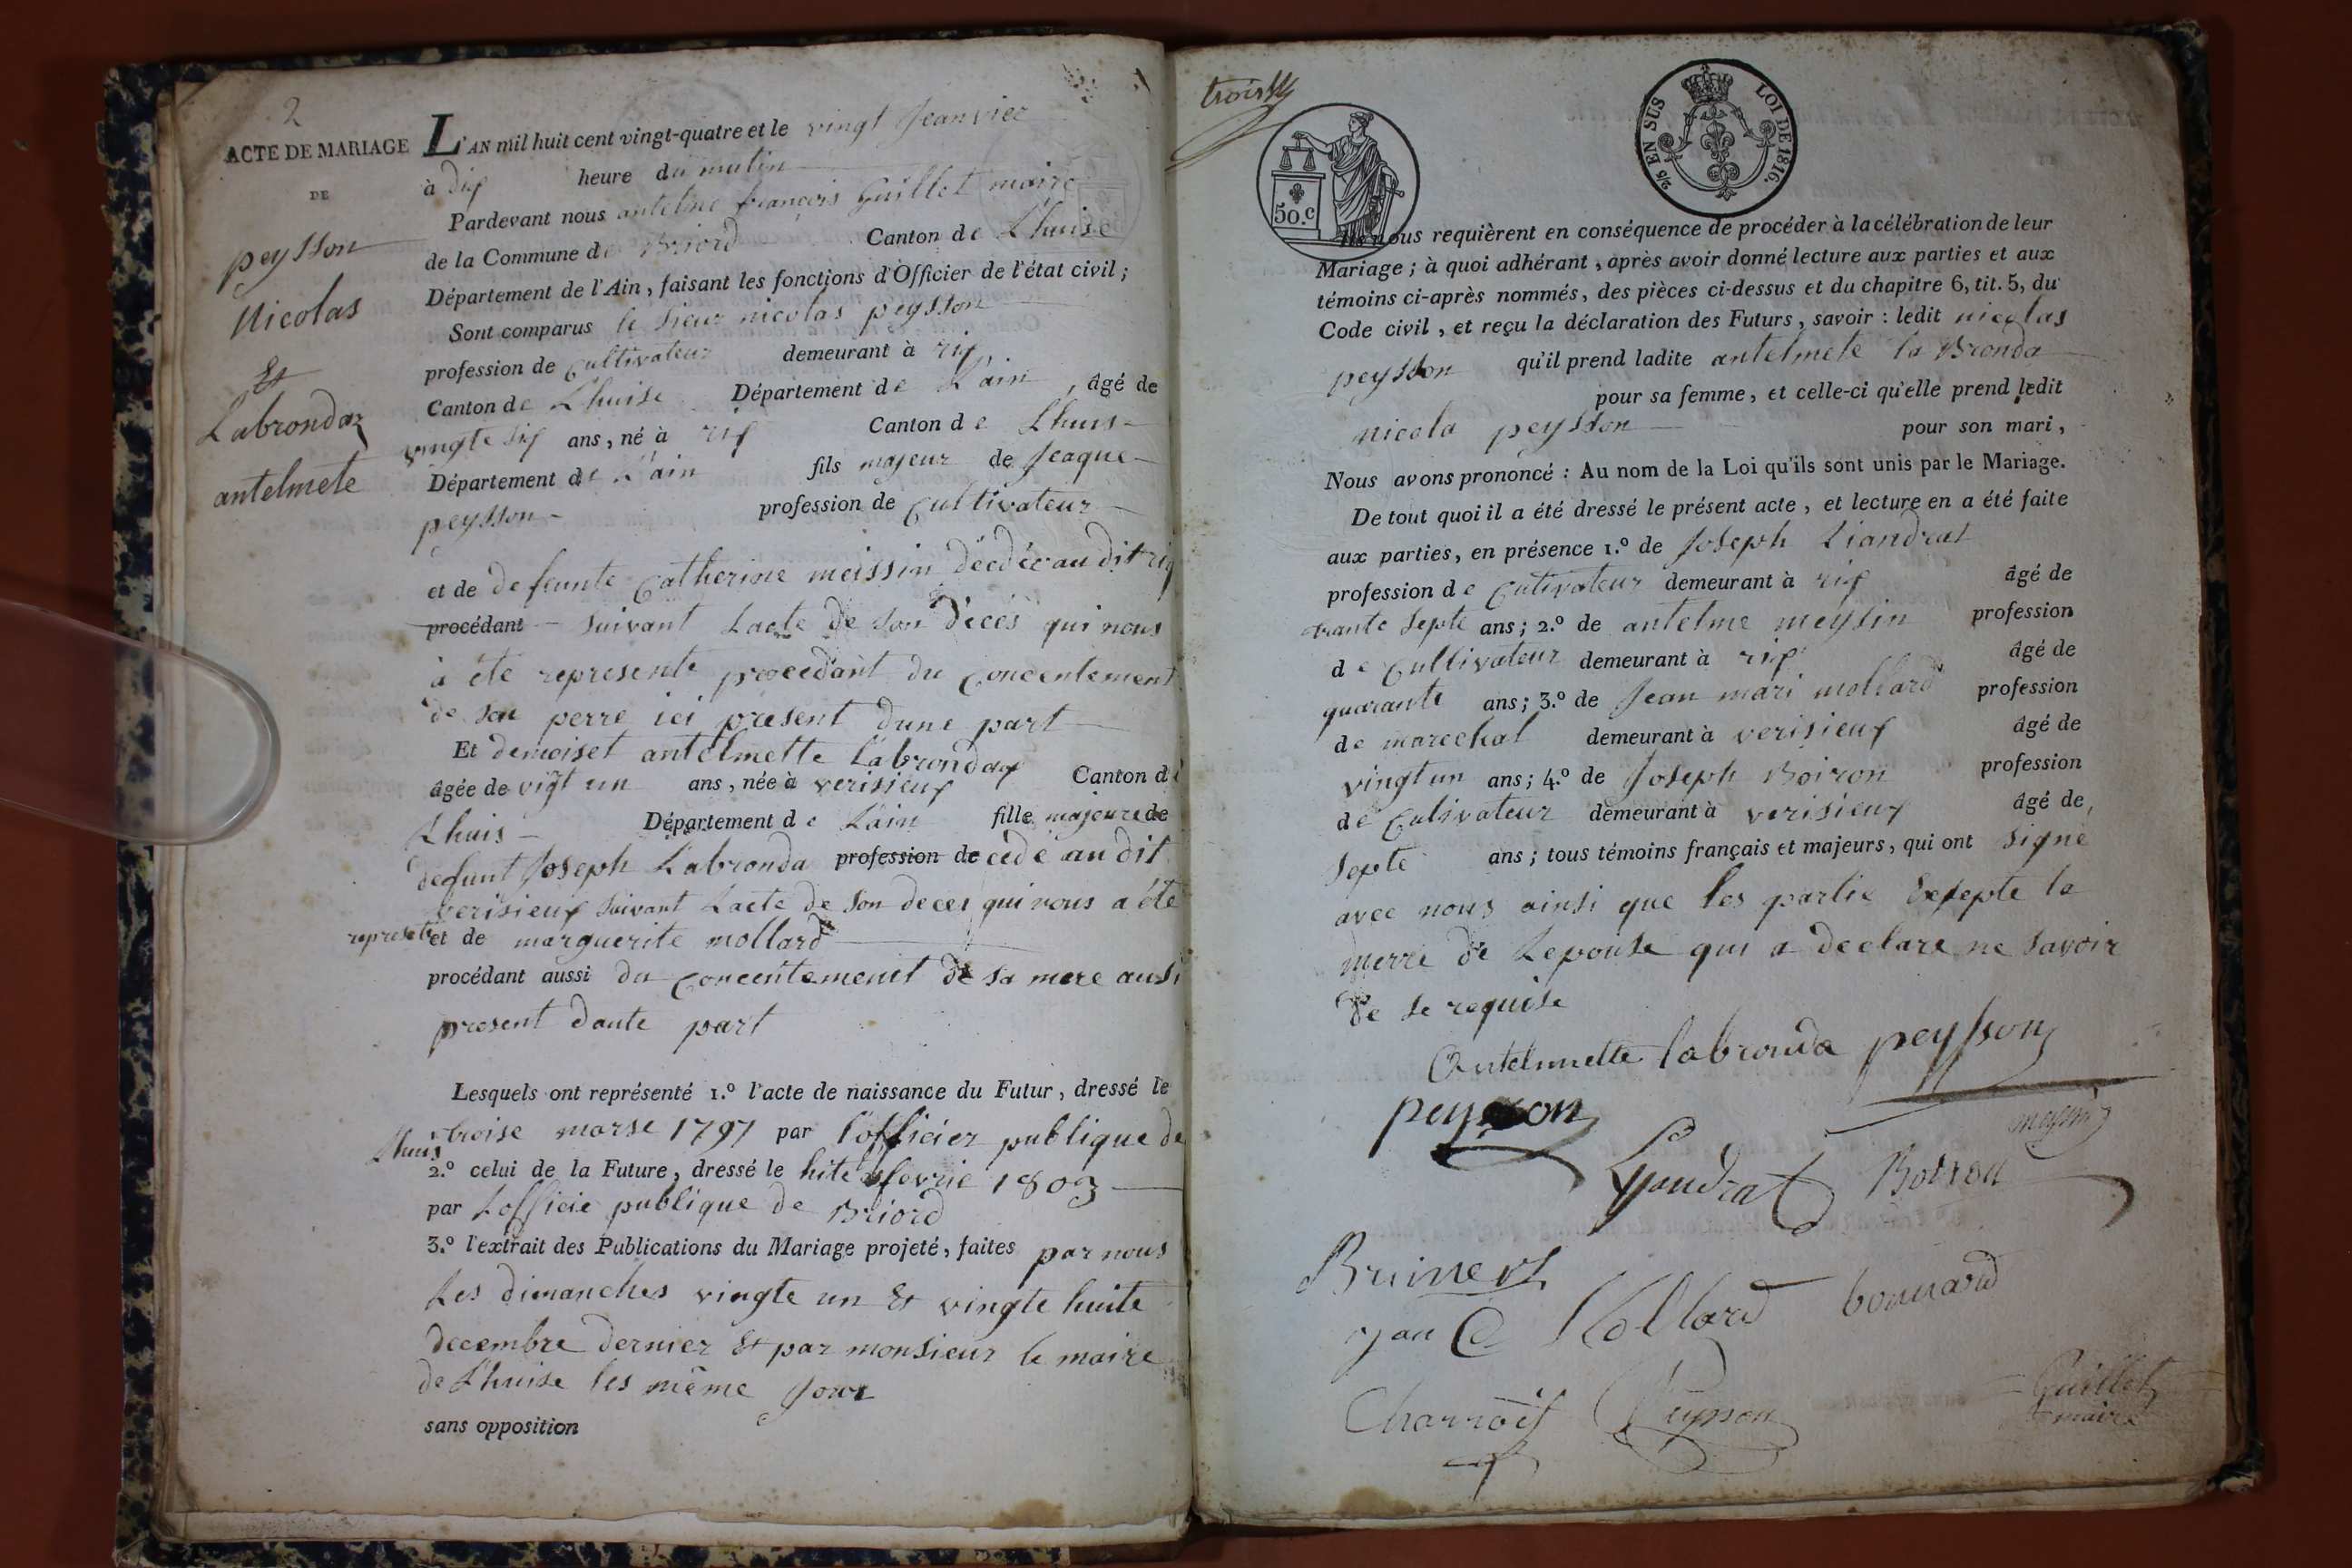 2
ACTE DE MARIAGE
DE
peysson
Nicolas
Et
Labrondaz
antelmete
L'AN mil huit cent vingt-quatre et le vingt Jeanvier
à dix heure du matin
Pardevant nous antelme françois Guillet maire
de la Commune de Briord Canton de Lhuise
Département de l'Ain, faisant les fonctions d'Officier de l'état civil;
Sont comparus le sieur nicolas peysson
profession de Cultivateur demeurant à rix
Canton de Lhuise Département de L'ain, âgé de
vingte six ans, né à rix Canton de Lhuis
Département de L'ain fils majeur de Jeaque
peysson profession de Cultivateur
et de defeunte Catherine meissin décdéé au dit rix
procédant suivant Lacte de son décés qui nous
à éte represente procedant du Concentement
de son perre ici présent dune part
Et demoiset antelmette Labrondax
âgée de vigt un ans, née à verisieux Canton de
Lhuis Département de Lain fille majeure de
defunt Joseph Labronda profession de cede au dit
verisieux suivant Lacte de son deces qui nous a éte
represete et de marguerite mollard
procédant aussi du Concentement de sa mere ausi
present daute part
Lesquels ont représenté 1.º l'acte de naissance du Futur, dressé le
troise marse 1797 par l'officier publique de
Lhuis
2.º celui de la Future, dressé le hite fevrie 1803
par Lofficie publique de Briord
3.º l'extrait des Publications du Mariage projeté, faites par nous
Les dimanches vingte un Et vingte huite
decembre dernier Et par monsieur le maire
de Lhuise les même Jour
sans opposition
50.C
2/5 EN SUS LOI DE 1816.
Ils nous requièrent en conséquence de procéder à la célébration de leur
Mariage; à quoi adhérant, après avoir donné lecture aux parties et aux
témoins ci-après nommés, des pièces ci-dessus et du chapitre 6, tit. 5, du
Code civil, et reçu la déclaration des Futurs, savoir: ledit nicolas
peysson qu'il prend ladite antelmete la Bronda
pour sa femme, et celle-ci qu'elle prend ledit
nicola peysson pour son mari,
Nous avons prononcé: Au nom de la Loi qu'ils sont unis par le Mariage.
De tout quoi il a été dressé le présent acte, et lecture en a été faite
aux parties, en présence 1.º de Joseph Liandrat
profession de Cutivateur demeurant à rix âgé de
trante septe ans; 2.º de antelme meysin profession
de Cultivateur demeurant à rix âgé de
quarante ans; 3.º de Jean mari mollard profession
de marechal demeurant à verisieux âgé de
vingt un ans; 4.º de Joseph Boiron profession
de Cultivateur demeurant à verisieux âgé de
septe ans; tous témoins français et majeurs, qui ont signé
avec nous ainsi que les partie Exsepte la
merre de Lepouse qui a declare ne savoir
de se requise
Antelmette labronda peysson
peysson
meysin
Lyandrat Boiron
Mollard bonnard
Charroix Peysson
Guillet
maire